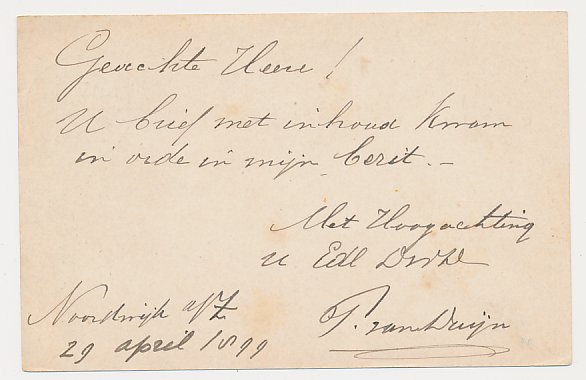 Geachte Heer!
U brief met inhoud kwam
in orde in mijn bezit. —
Met Hoogachting
U Edl
Noordwijk a/Z
29 april 1899
P. van Duijn